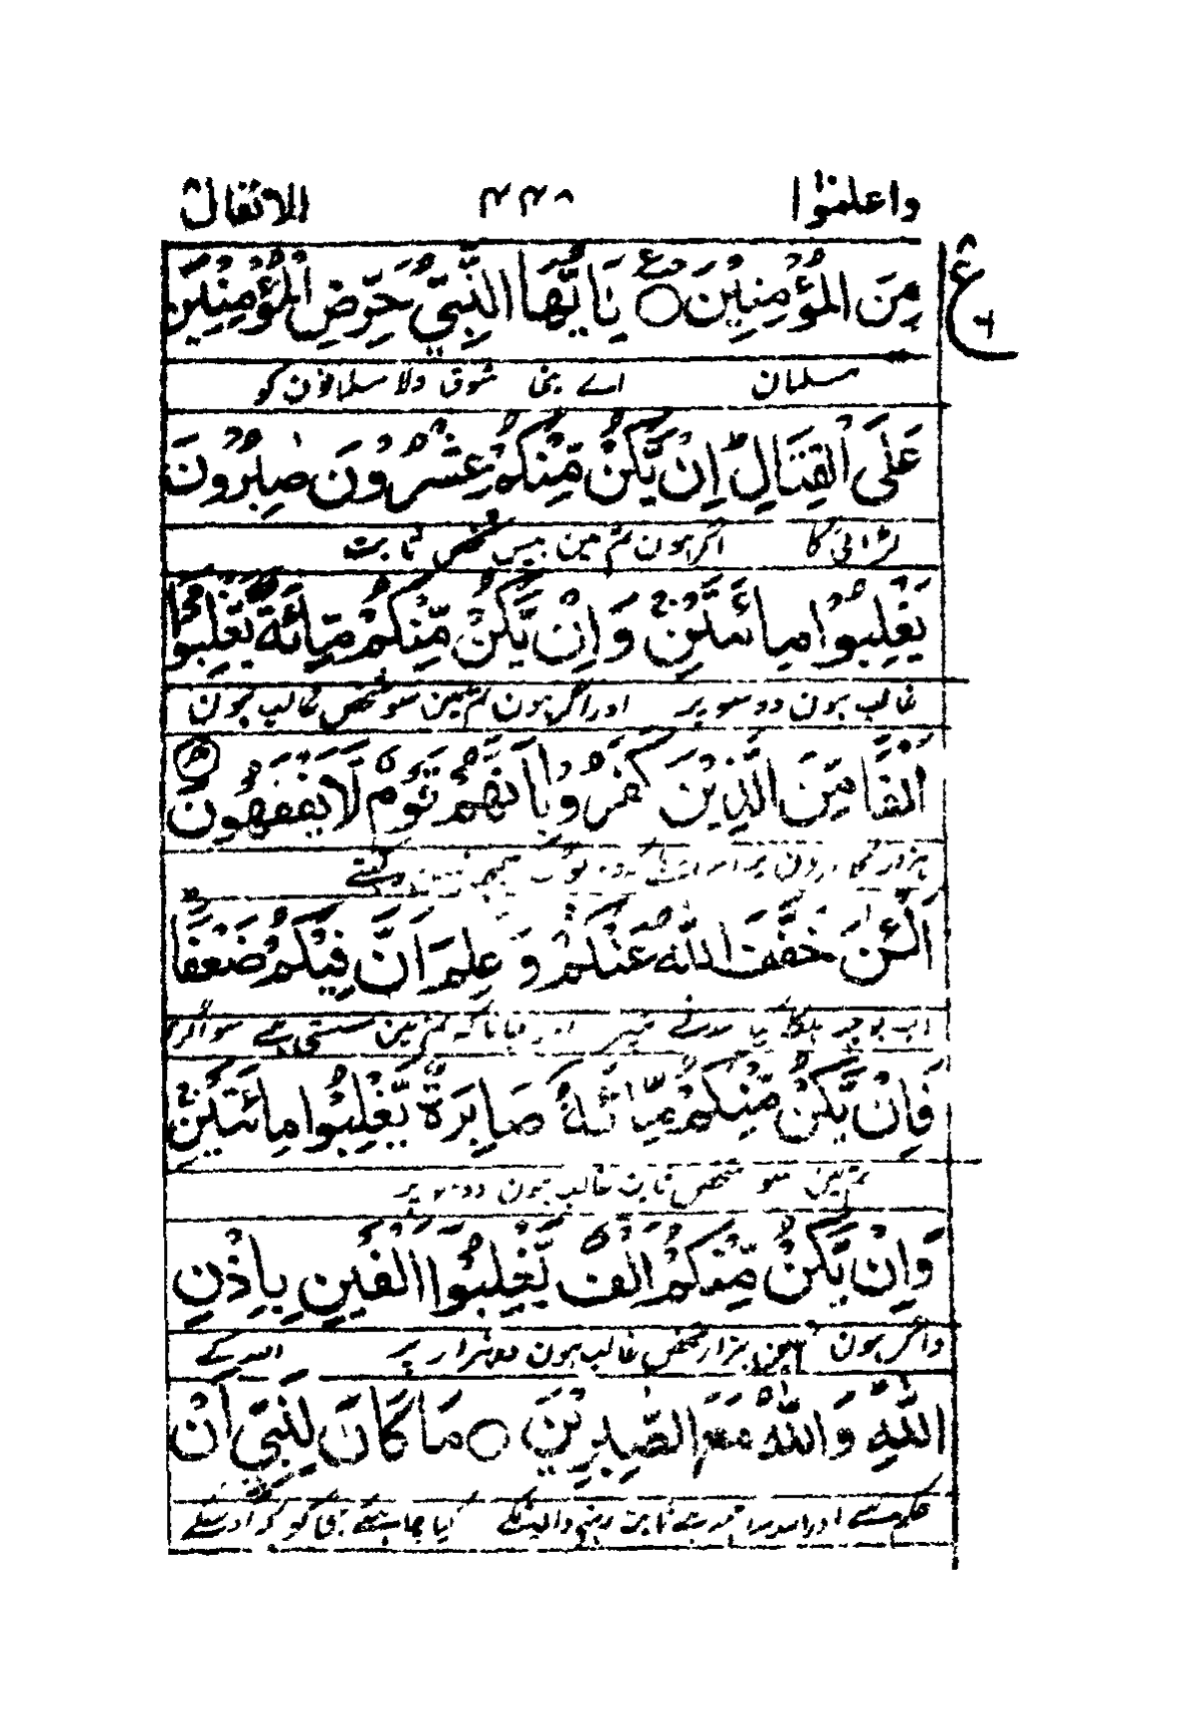 واعلموا ٢٢٨ الانفال
ع
مِنَ الْمُؤْمِنِيْنَ ○ يٰاَيُّهَا النَّبِيُّ حَرِّضِ الْمُؤْمِنِيْنَ
مسلمان اے نبی شوق دلا مسلمانون کو
عَلَى الْقِتَالِ ؕ اِنْ يَّكُنْ مِّنْكُمْ عِشْرُوْنَ صٰبِرُوْنَ
لڑائی کا اگر ہون تم مین بیس شخص ثابت
يَغْلِبُوْا مِائَتَيْنِ ۚ وَاِنْ يَّكُنْ مِّنْكُمْ مِّائَةٌ يَّغْلِبُوْا
غالب ہون دو سو پر اور اگر ہون تم مین سو شخص غالب ہون
اَلْفًا مِّنَ الَّذِيْنَ كَفَرُوْا بِاَنَّهُمْ قَوْمٌ لَّا يَفْقَهُوْنَ
ہزار پر لوگ سمجھ نہین رکھتے
اَلْئٰنَ خَفَّفَ اللّٰهُ عَنْكُمْ وَعَلِمَ اَنَّ فِيْكُمْ ضَعْفًا
اب بوجھ ہلکا کیا اور جانا کہ تم مین سستی ہے سو اگر
فَاِنْ يَّكُنْ مِّنْكُمْ مِّائَةٌ صَابِرَةٌ يَّغْلِبُوْا مِائَتَيْنِ ۚ
تم مین سو شخص ثابت غالب ہون دو سو پر
وَاِنْ يَّكُنْ مِّنْكُمْ اَلْفٌ يَّغْلِبُوْٓا اَلْفَيْنِ بِاِذْنِ
واگر ہون ہزار شخص غالب ہون دو ہزار پر اللہ کے
اللّٰهِ ؕ وَاللّٰهُ مَعَ الصّٰبِرِيْنَ ○ مَا كَانَ لِنَبِيٍّ اَنْ
حکم سے اور اللہ ثابت رہنے والونکے کیا چاہئے نبی کو کہ